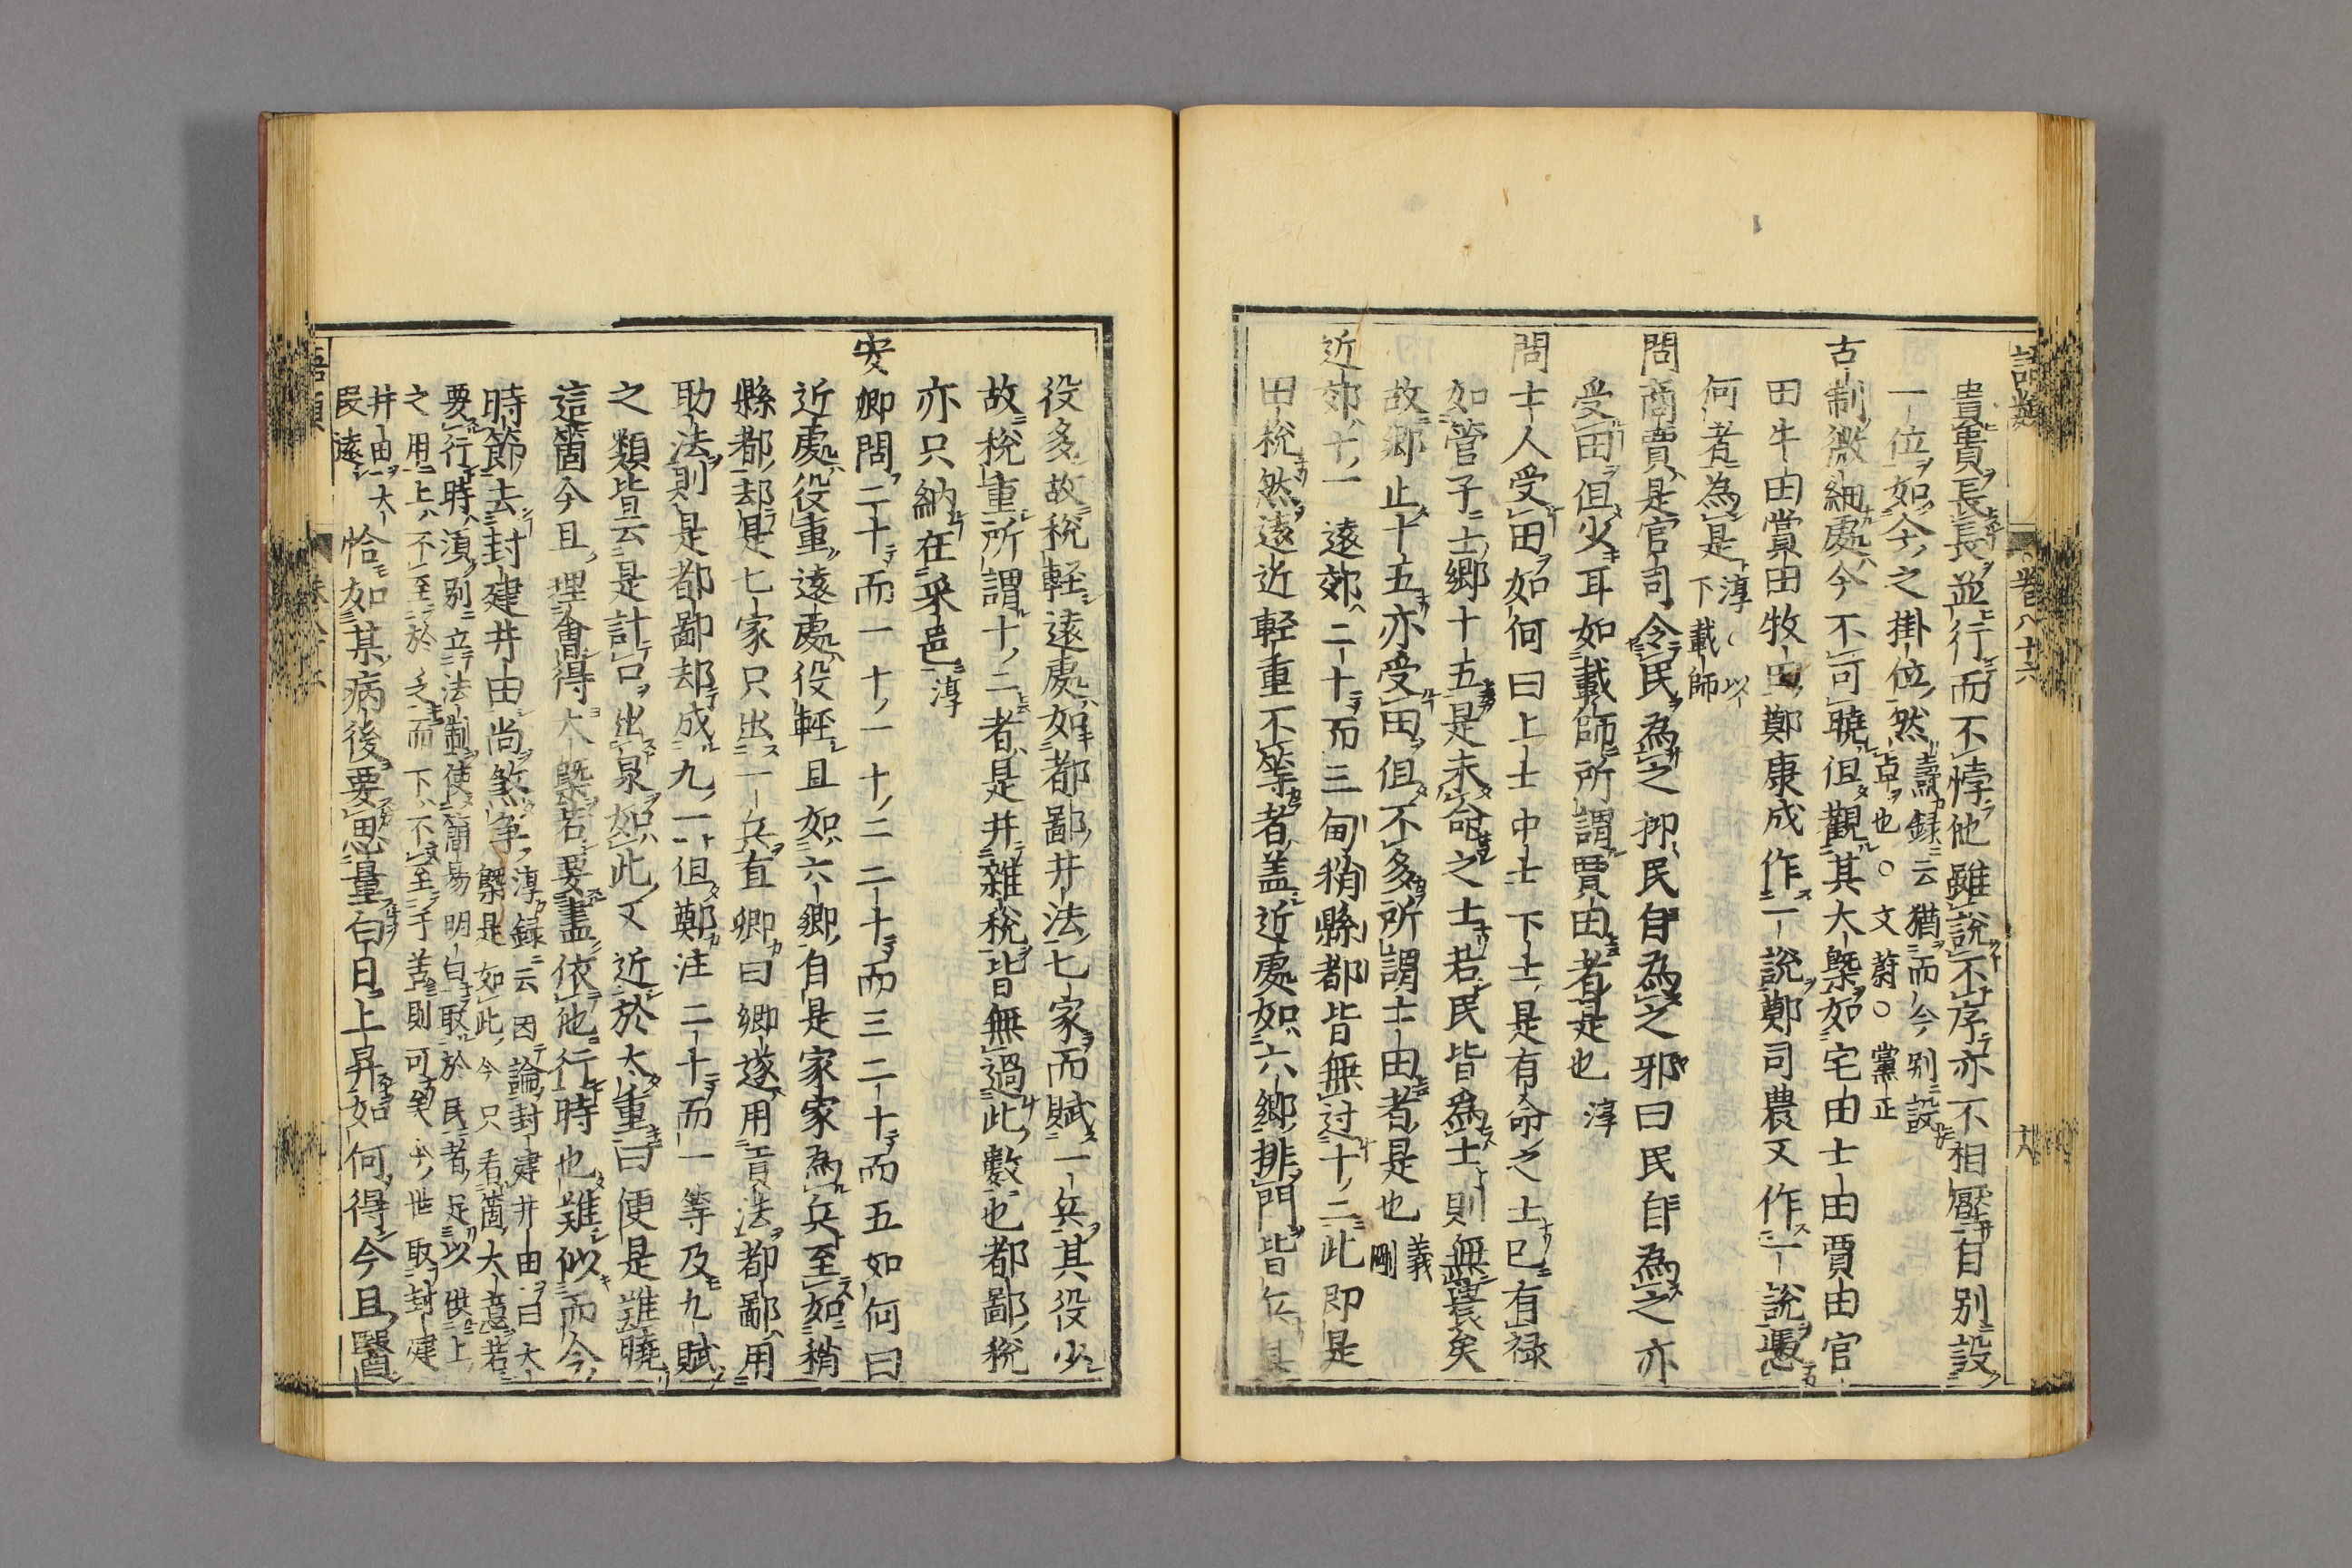 語類
卷八十六
十八
貴貴長長並行而不悖他雖說不序亦不相壓自別設
一位如今之掛位然
壽錄云猶而今別設
卓也○文蔚○黨正
古制微細處今不可曉但觀其大槩如宅田士田賈田官
田牛田賞田牧田鄭康成作一說鄭司農又作一說憑
何者為是
淳以
下載師
問商賈是官司令民為之抑民自為之邪曰民自為之亦
受田但少耳如載師所謂賈田者是也淳
問士人受田如何曰上士中士下士是有命之士已有祿
如管子士鄉十五是未命之士若民皆為士則無農矣
故鄉止十五亦受田但不多所謂士田者是也
義
剛
近郊十一遠郊二十而三甸稍縣都皆無过十二此即是
田稅然遠近輕重不等者盖近處如六鄉排門皆兵其
役多故稅輕遠處如都鄙井法七家而賦一兵其役少
故稅重所謂十二者是井雜稅皆無過此數也都鄙稅
亦只納在采邑淳
安卿問二十而一十一十二二十而三二十而五如何曰
近處役重遠處役輕且如六鄉自是家家為兵至如稍
縣都却是七家只出一兵直卿曰鄉遂用貢法都鄙用
助法則是都鄙却成九一但鄭注二十而一等及九賦
之類皆云是計口出泉如此又近於太重曰便是難曉
這箇今且理會得大槩若要盡依他行時也難似而今
時節去封建井田尚煞争
淳錄云因論封建井田曰大
槩是如此今只看箇大意若
要行時須別立法制使簡易明白取於民者足以供上
之用上不至於乏而下不至於苦則可矣今世取封建
井田大
叚遠
恰如某病後要思量白日上昇如何得今且醫
語類